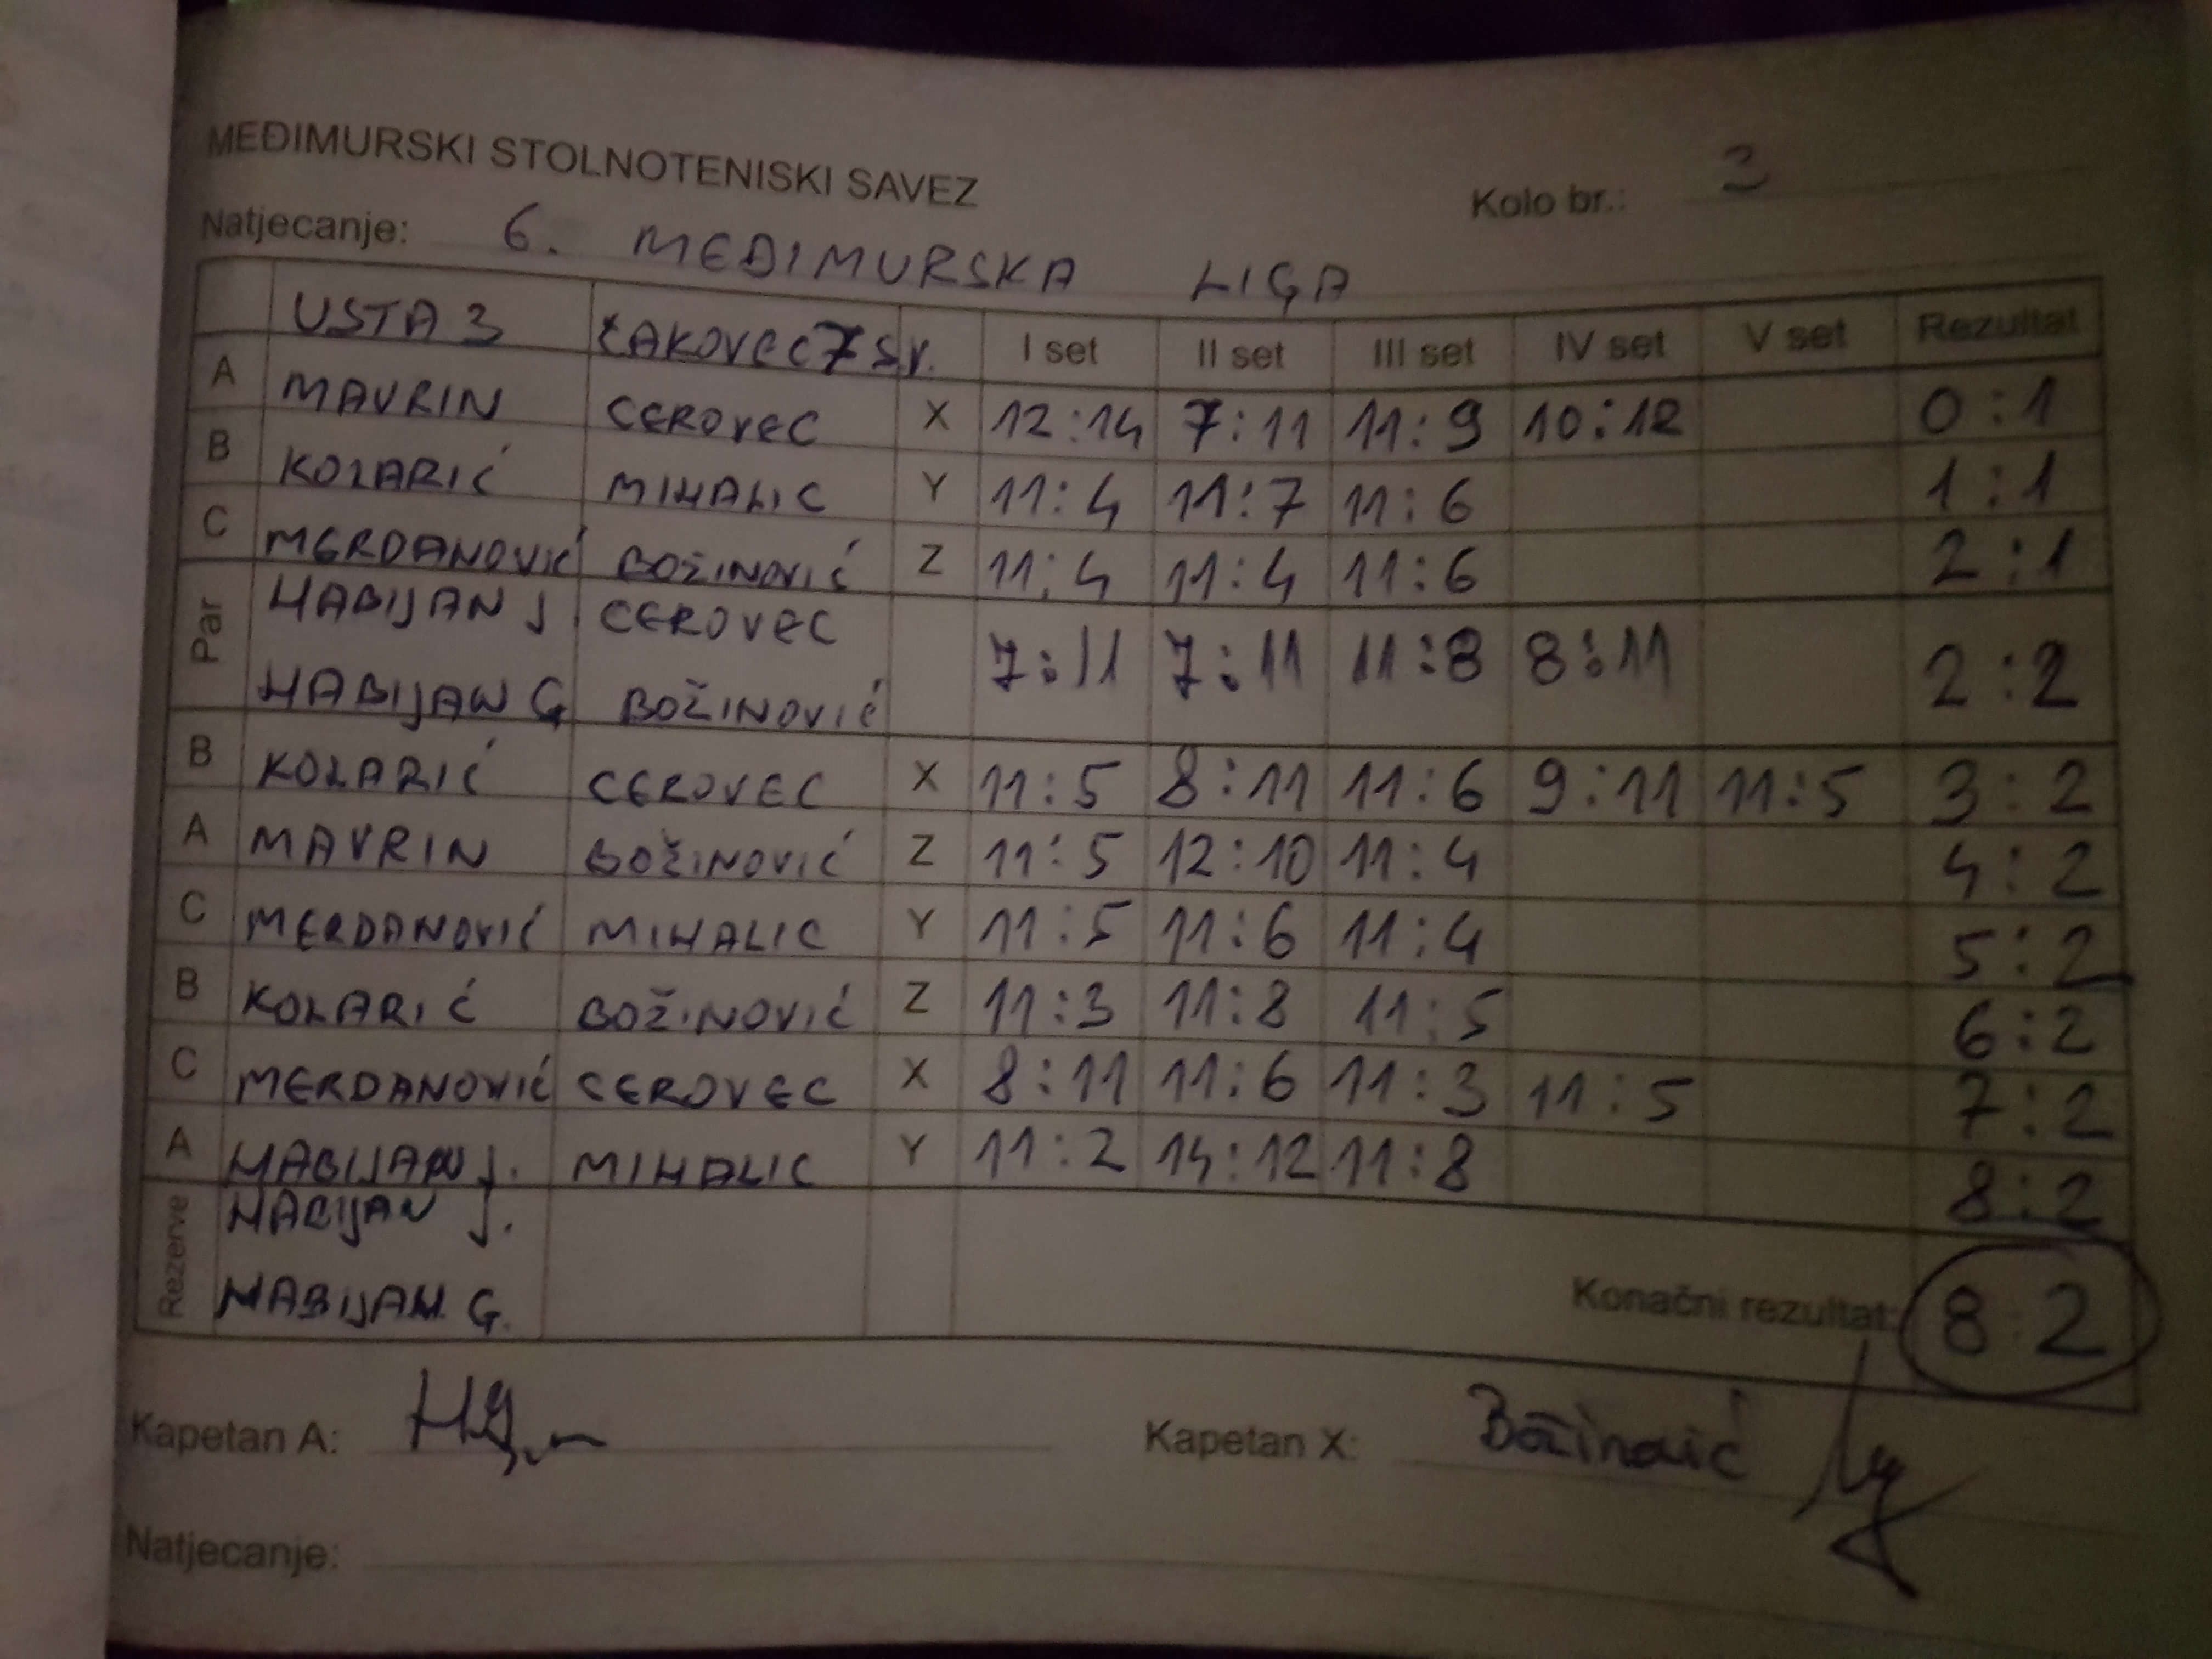 MEĐIMURSKI STOLNOTENISKI SAVEZ
Kolo br.:
Natjecanje: 6. MEĐIMURSKA LIGA
USTA 3 ČAKOVEC 7 SV. I set II set III set IV set V set Rezultat
A MAVRIN CEROVEC X 12:14 7:11 11:9 10:12 0:1
B KOLARIĆ MIHALIC Y 11:4 11:7 11:6 1:1
C MERDANOVIĆ BOŽINOVIĆ Z 11:4 11:4 11:6 2:1
Par HABIJAN J CEROVEC 7:11 7:11 11:8 8:11 2:2
HABIJAN G BOŽINOVIĆ
B KOLARIĆ CEROVEC X 11:5 8:11 11:6 9:11 11:5 3:2
A MAVRIN BOŽINOVIĆ Z 11:5 12:10 11:4 4:2
C MERDANOVIĆ MIHALIC Y 11:5 11:6 11:4 5:2
B KOLARIĆ BOŽINOVIĆ Z 11:3 11:8 11:5 6:2
C MERDANOVIĆ CEROVEC X 8:11 11:6 11:3 11:5 7:2
A HABIJAN J. MIHALIC Y 11:2 14:12 11:8 8:2
Rezerve HABIJAN J.
HABIJAN G.
Konačni rezultat: 8:2
Kapetan A: Kapetan X: Božinović
Natjecanje: